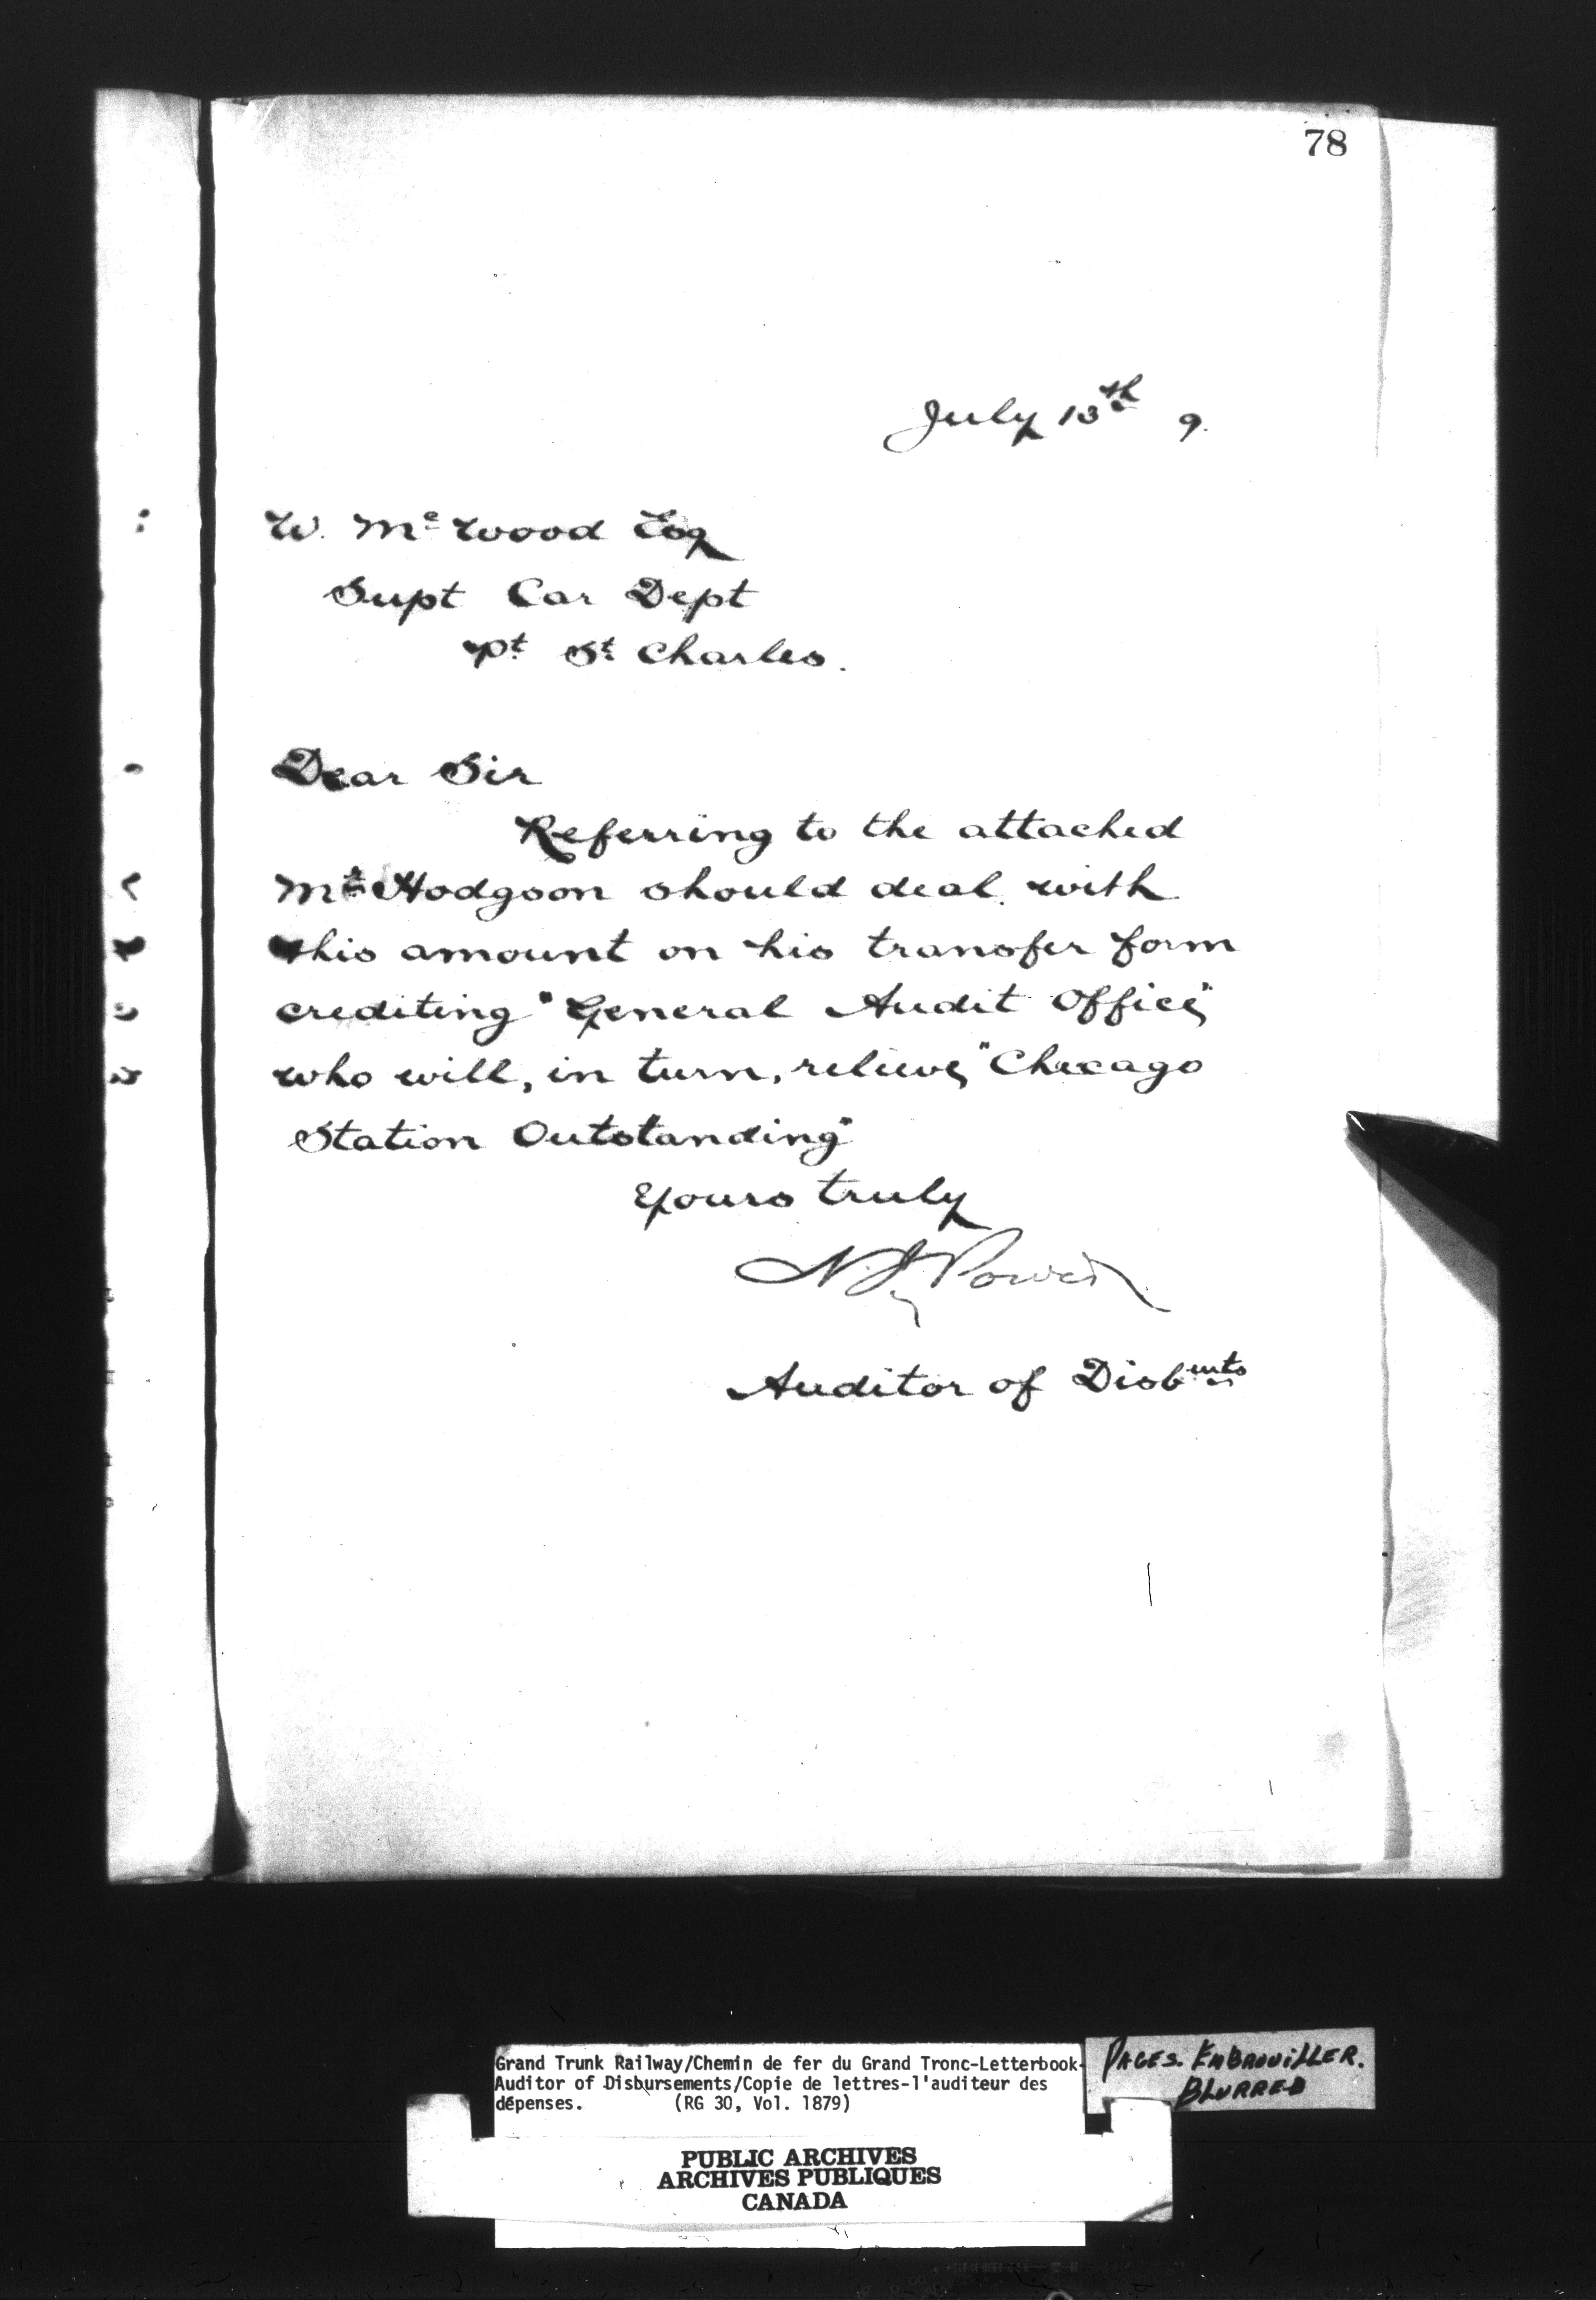 78
July 13th 9.
W. Mc Wood Esq
Supt Car Dept
Pt St Charles.
Dear Sir
Referring to the attached
Mr Hodgson should deal with
this amount on his transfer form
crediting "General Audit Office"
who will, in turn, relieve, "Chicago
Station Outstanding"
Yours truly
N J Power
Auditor of Disbmts
Grand Trunk Railway/Chemin de fer du Grand Tronc-Letterbook-
Auditor of Disbursements/Copie de lettres-l'auditeur des
dépenses. (RG 30, Vol. 1879)
PAGES. EMBROUILLER.
BLURRED
PUBLIC ARCHIVES
ARCHIVES PUBLIQUES
CANADA